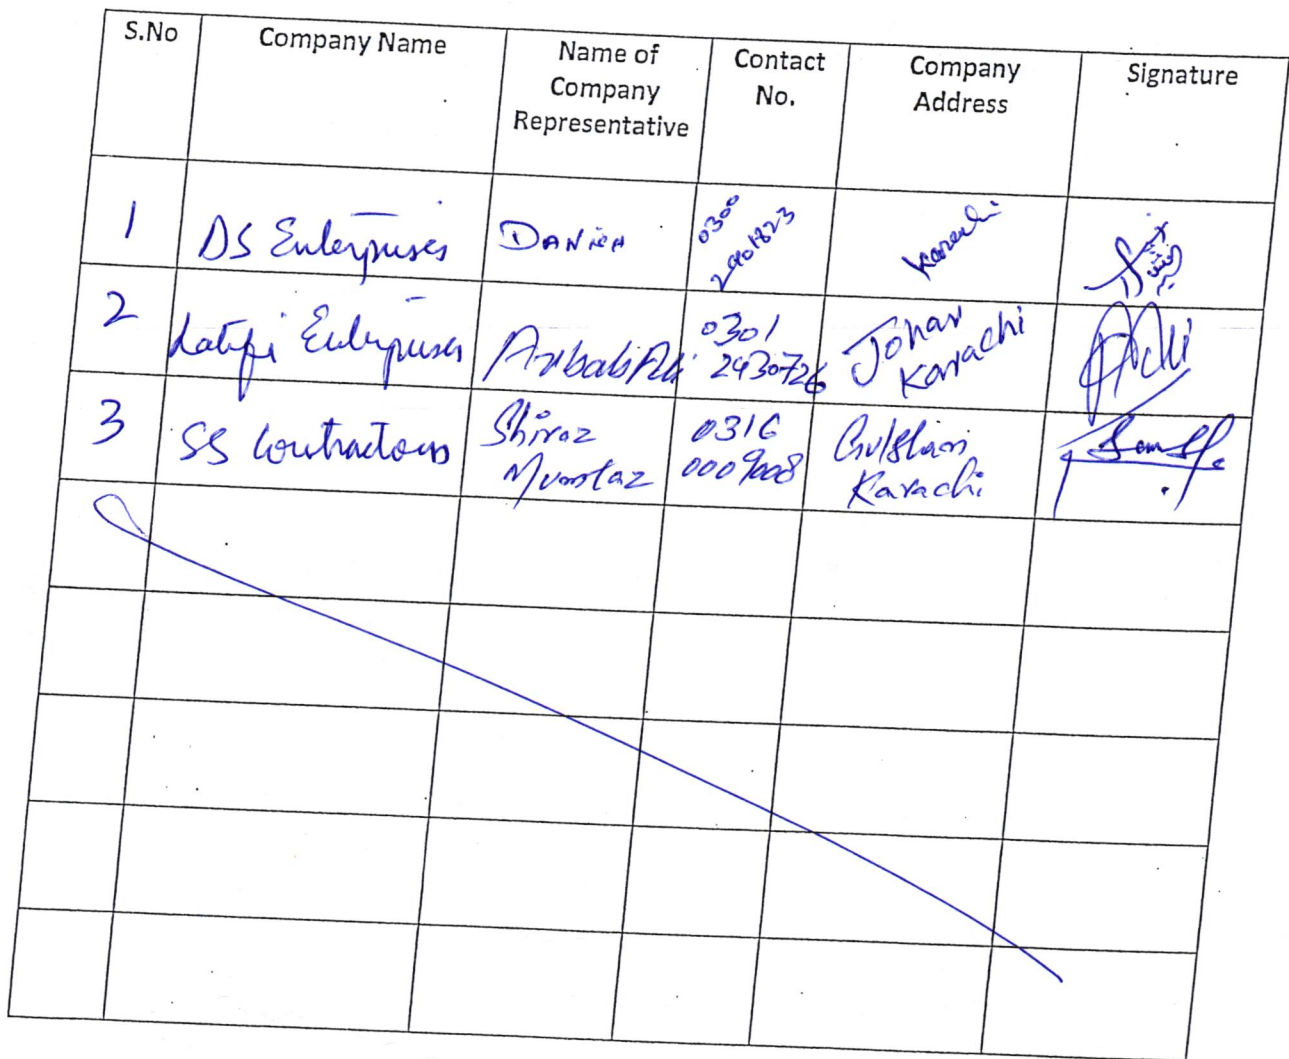 S.No
Company Name
Name of
Company
Representative
Contact
No.
Company
Address
Signature
1
DS Enterprises
DANISH
0300
2901823
Karachi
2
Latifi Enterprises
Arbab Ali
0301
2430726
Johar
Karachi
3
SS Contractors
Shiraz
Mumtaz
0316
0009008
Gulshan
Karachi